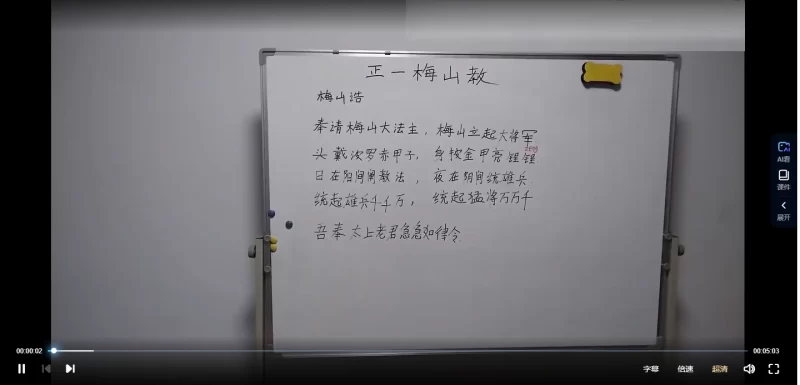 正一梅山教
梅山浩
奉请梅山大法主，梅山立起大将军
头戴汝罗赤甲子，身披金甲亮锃锃
日在阳间阐教法，夜在阴间统雄兵
统起雄兵千千万，统起猛将万万千
吾奉太上老君急急如律令
AI看
课件
展开
00:00:02
00:05:03
字幕
倍速
超清